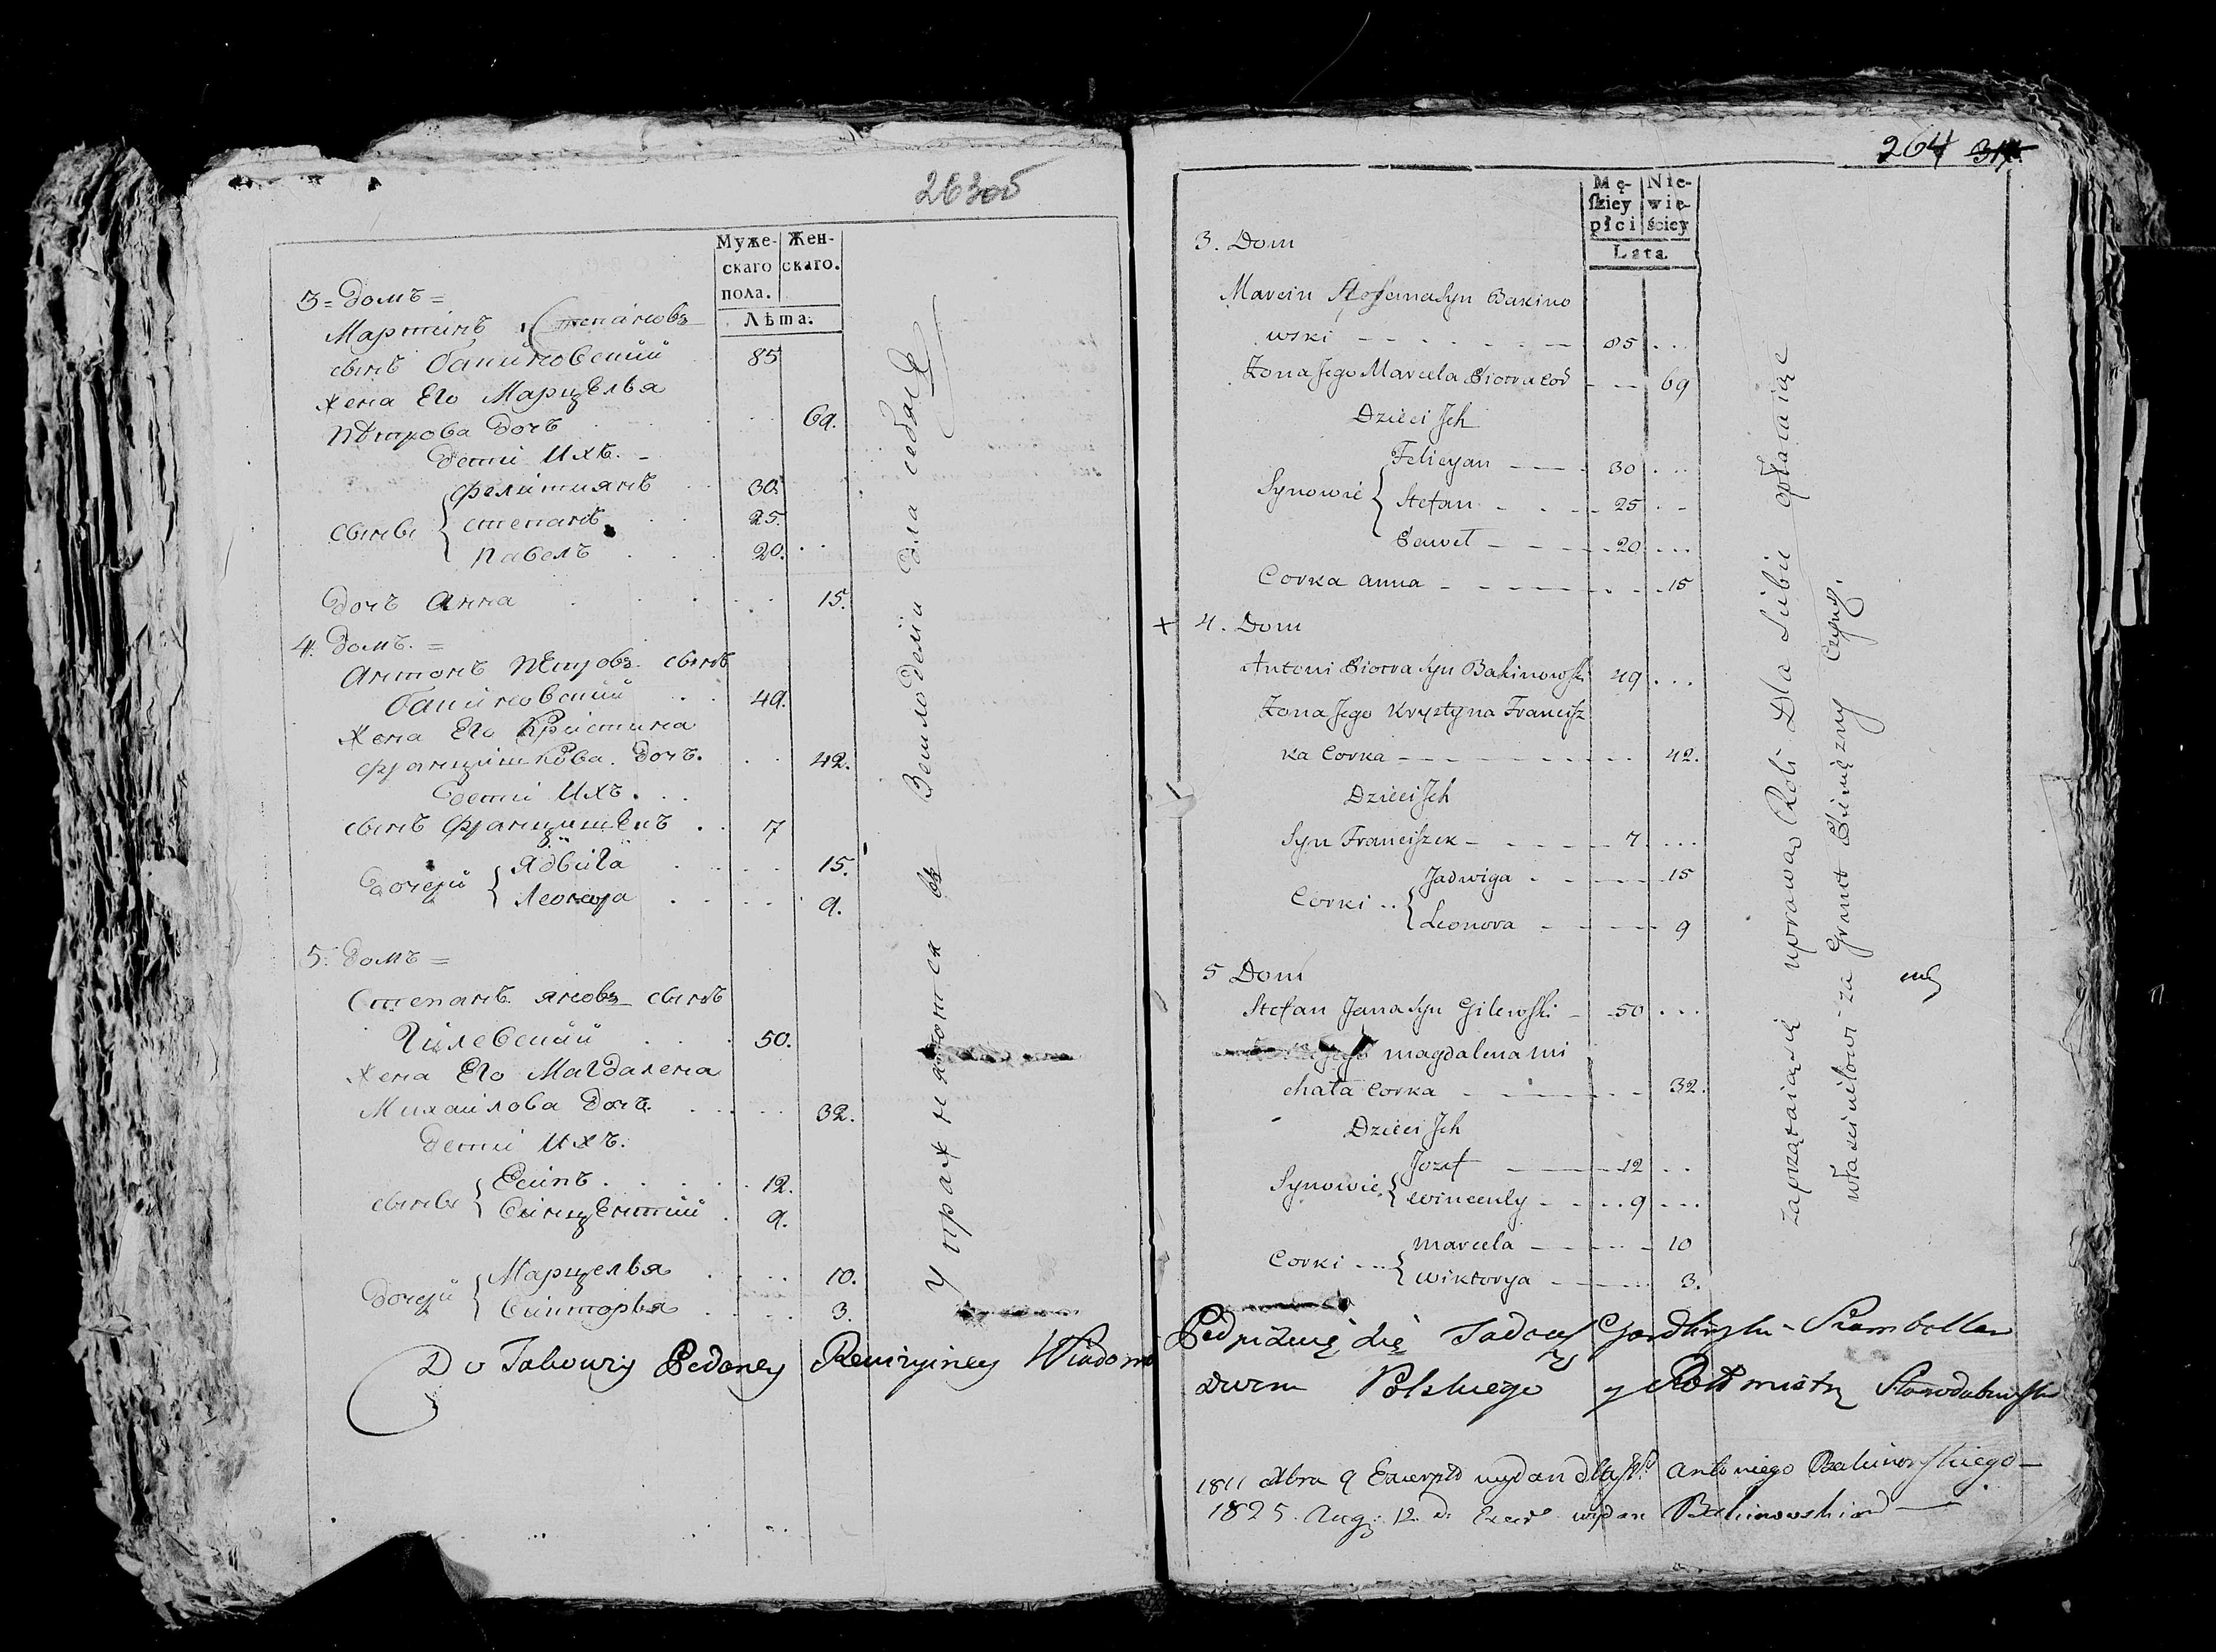 263об
Муже- Жен-
скаго скаго.
пола.
Лѣта.
3 = Домъ =
Мартинъ Степановъ
сынъ Бакиновский 85
Жена Его Марцелья
Пѣтрова Дочь 69.
Дети Ихъ. -
Фелициянъ 30.
сыны { степанъ 25.
Павелъ 20.
Дочь Анна 15.
4. Домъ. =
Антонъ Пѣтровъ сынъ
Бакиновский 49.
Жена Его Кристина
Францишкова Дочь. 42.
Дети Ихъ.
сынъ Францишекъ 7
Дочери { Ядвига 15.
Леонора 9.
5. Домъ =
Степанъ яновъ сынъ
Гилевский 50.
Жена Его Магдалена
Михайлова Дочь. 32.
Дети Ихъ.
сыны { Есипъ 12.
Винцентий 9.
Дочери { Марцелья 10.
Викторья 3.
Упражняются въ Земледелии для себя
Do Takowey Podaney Rewizyiney Wiadom
264 314.
Mę- Nie-
ſkiey wie-
płci ściey
Lata
3. Dom
Marcin Stefana Syn Bakino
wski 85 ...
Zona Jego Marcela Piotra Cor 69
Dzieci Jch
Felicyan 30 ...
Synowie { Stefan 25 ..
Paweł 20 ...
Corka Anna 15
+ 4. Dom
Antoni Piotra Syn Bakinowſki 49 ...
Zona Jego Krystyna Franciſz
ka Corka 42.
Dzieci Jch
Syn Franciſzek 7 ...
Corki { Jadwiga 15
Leonora 9
5 Dom
Stefan Jana Syn Gilewſki 50 ...
Jego Magdalena Mi
chała Corka 32.
Dzieci Jch
Jozef 12 ..
Synowie { Wincenty 9 ...
Corki { Marcela 10
Wiktorya 3.
zaprzątaią się uprawą Roli Dla Siebie opłacaiąc
właścicielowi za Grunt Pieniężny Czynsz.
Podpisuię się Tadeusz Szambellan
Dworu Polskiego y Rottmistrz Starodubowſki
1811 Xbra 9 Excerpt wydan dla Jp. Antoniego Bakinowſkiego
1825. Aug: 12 d. Excer wydan Bakinowskim